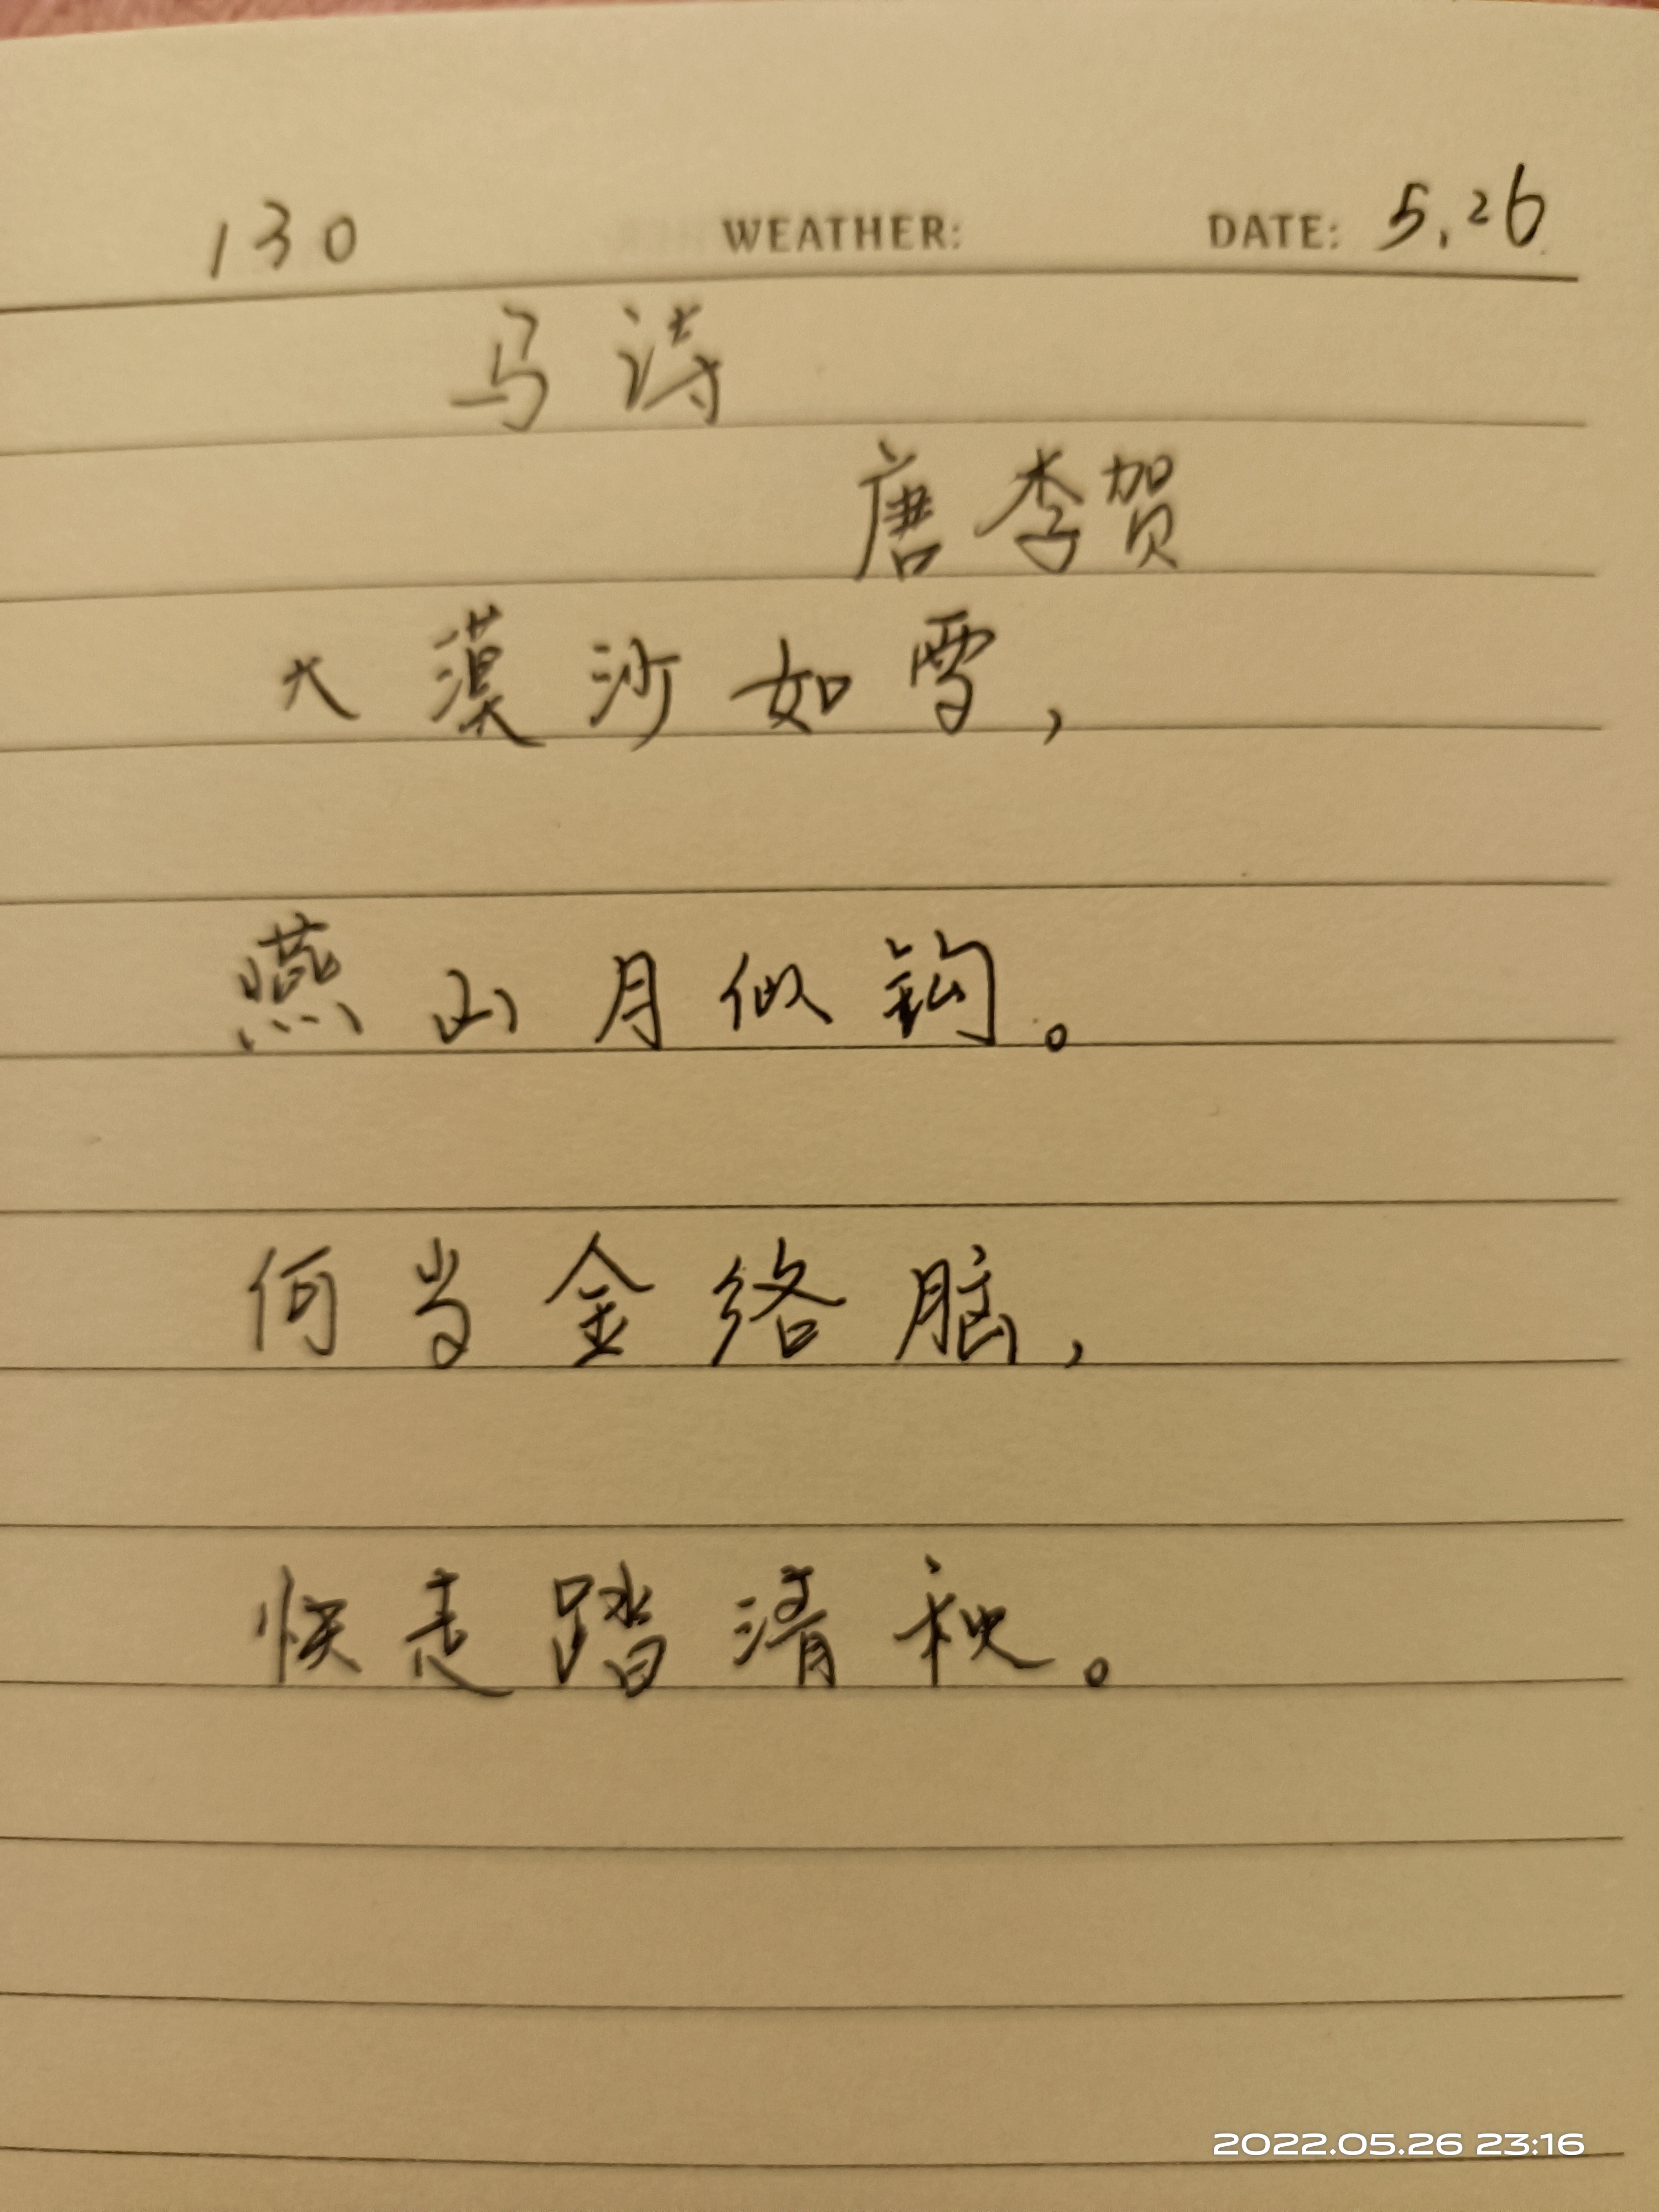 130 WEATHER: DATE: 5.26
马诗
唐 李贺
大漠沙如雪，
燕山月似钩。
何当金络脑，
快走踏清秋。
2022.05.26 23:16